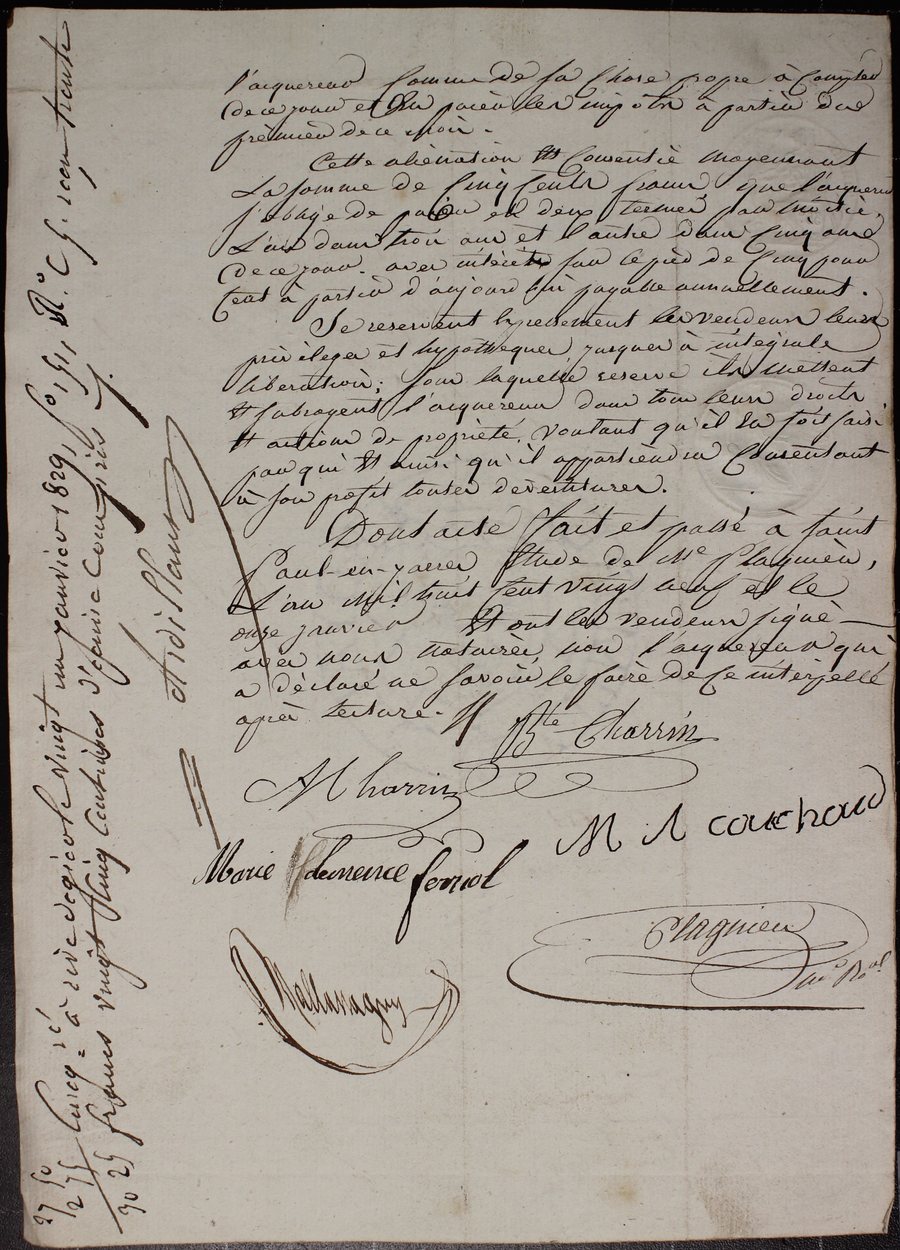 l'acquereur comme de sa chose propre à compter
de ce jour et en paiera les impots à partir du
premier de ce mois.
Cette aliénation est Consentie moyennant
La somme de Cinq Cents francs que l'acquereur
s'oblige de payer en deux termes par moitié,
L'un dans trois ans et l'autre dans Cinq ans
de ce jour. avec intérèts sur le pied de Cinq pour
Cent à partir d'aujourd'hui payable annuellement.
Se reservent expressement les vendeurs leurs
privileges et hypothèques jusques à intégrale
libération; sous laquelle reserve ils mettent
et subrogent l'acquereur dans tous leurs droits
et actions de propriété, voulant qu'il en soit saisi
par qui et ainsi qu'il appartiendra Consentant
à son profit toutes devestitures.
Dont acte fait et passé à Saint
Paul-en-jarret Etude de Me Plagnieu,
L'an mil huit cent vingt neuf et le
onze janvier Et ont les vendeurs signé
avec nous notaires non l'acquereur qui
a déclaré ne savoir le faire de ce interpellé
après lecture.
Bte Charrin
M Charrin
M A couchoud
Marie Clemence ferriol
Plagnieu
Enregé à rive de gier le vingt un janvier 1829, fo 151, Ro C 5. reçu trente
francs vingt cinq centimes dixième compris
27 50
2 75
30 25